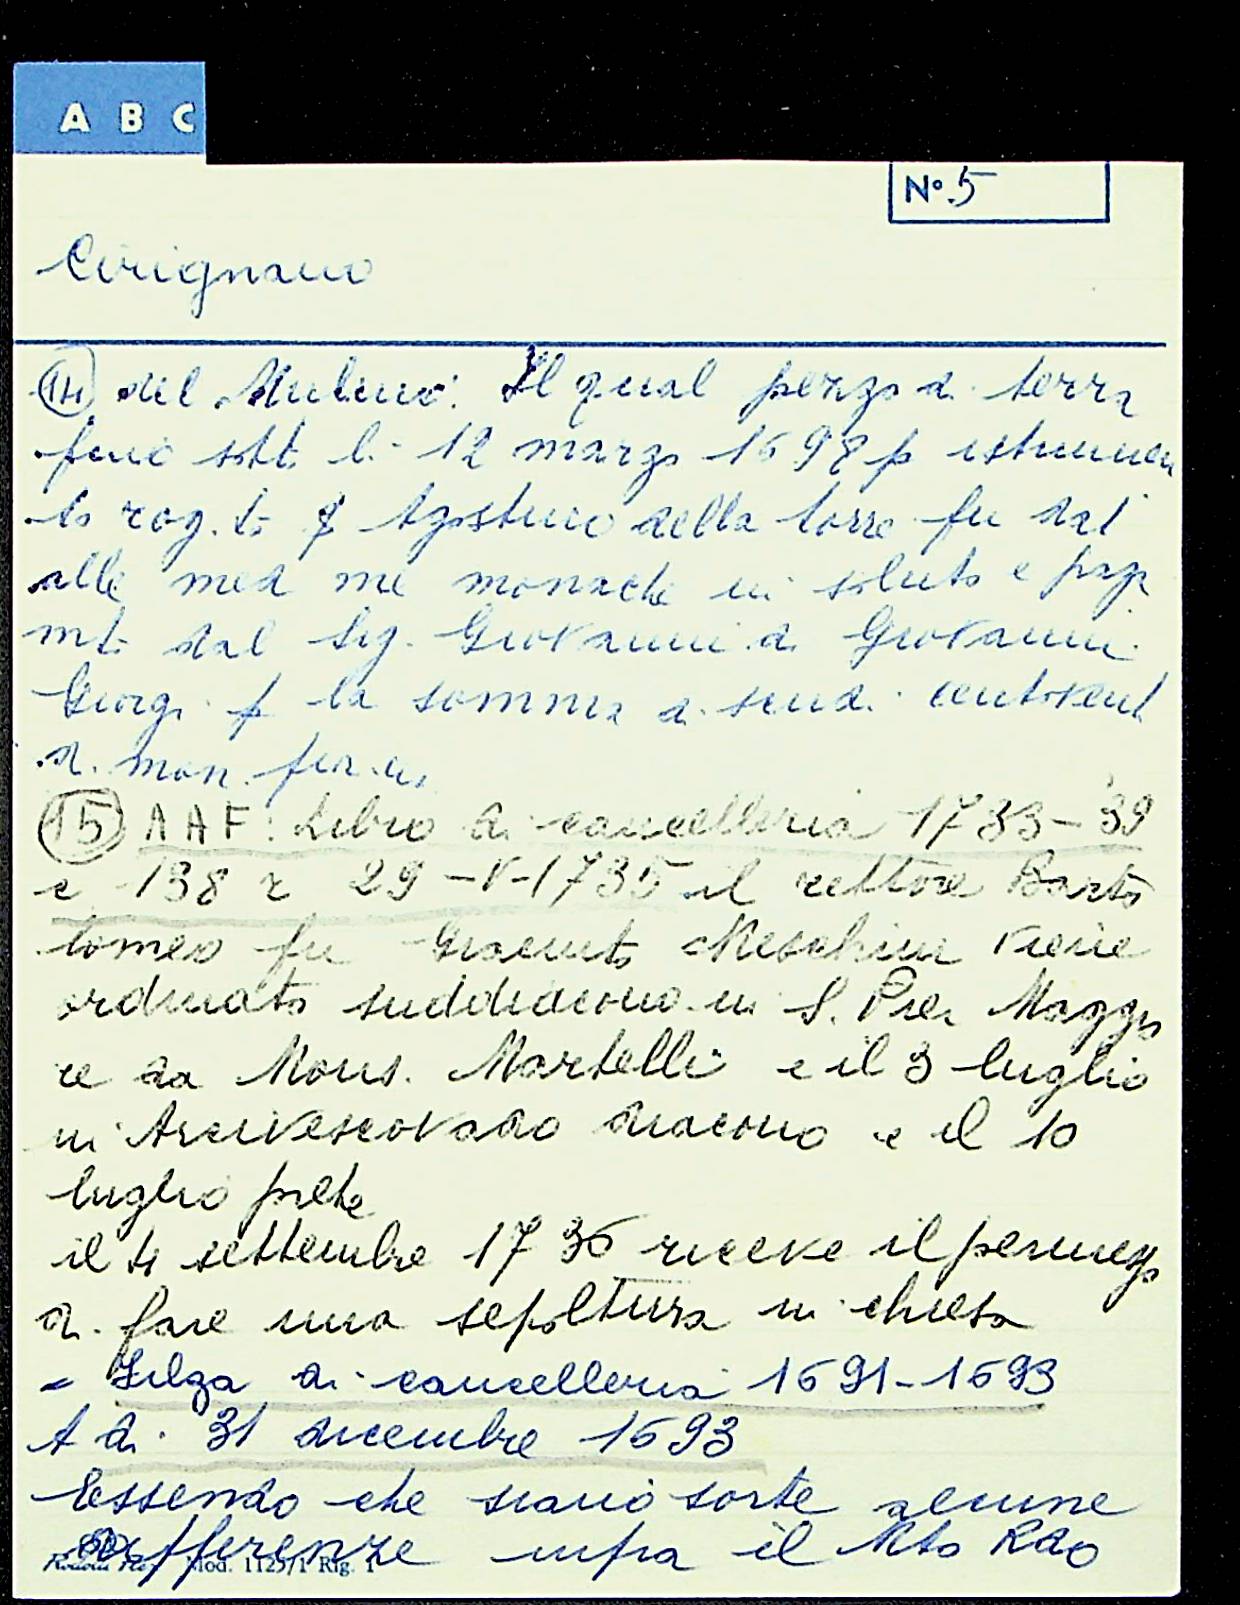 A B C
Nº 5
Cirignano
(14) del Mulino. Il qual pezzo di terra
fino sott. li 12 marzo 1698 p istrumen
to rog. to Agostino della torre fu dat
alle med me monache in soluto e pag
mto dal Sig. Giovanni di Giovanni
Giorgi p la somma di scudi centovent
di mon. fior.
(15) AAF: Libro di cancelleria 1733-39
c 138 r 29-V-1735 il rettore Barto
lomeo fu Giacinto Meschini viene
ordinato suddiacono in S. Pier Maggio
re da Mons. Martelli e il 3 luglio
in Arcivescovado diacono e il 10
luglio prete
il 4 settembre 1736 riceve il permesso
di fare una sepoltura in chiesa
= Filza di cancelleria 1691-1693
A di 31 dicembre 1693
Essendo che siano sorte alcune
differenze infra il Mto Rdo
Mod. 1125/1 Rig. 1